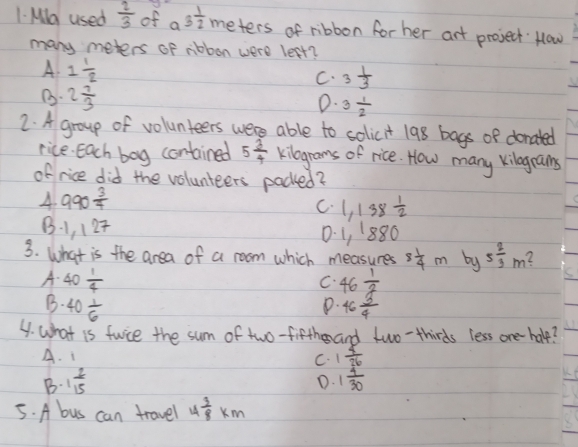 1. Mila used 2/3 of a 3 1/2 meters of ribbon for her art project. How
many meters of ribbon were lest?
A. 1 1/2
C. 3 1/3
B. 2 2/3
D. 3 1/2
2. A group of volunteers were able to solicit 198 bags of donated
rice. Each bag contained 5 3/4 kilograms of rice. How many kilograms
of rice did the volunteers packed?
A. 990 3/4
C. 1,138 1/2
B. 1,127
D. 1,1880
3. What is the area of a room which measures 8 1/4 m by 5 2/3 m?
A. 40 1/4
C. 46 1/2
B. 40 1/6
D. 46 3/4
4. What is twice the sum of two-fifths and two-thirds less one-half?
A. 1
C. 1 4/26
B. 1 2/15
D. 1 4/30
5. A bus can travel 14 3/8 km